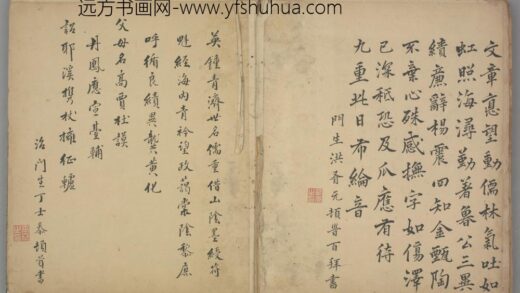 远方书画网- www.yfshuhua.com
文章意望動儒林氣吐如
虹照海潯勤著魯公三異
績廉辭楊震四知金甄陶
不棄心殊感撫字如傷澤
已深秖恐及瓜應有待
九重此日布綸音
門生洪 元頓首百拜書
英鍾青濟世名儒重借山陰墨綬符
魁經海內青衿望政藹棠陰黎庶
呼循良績異龔黃化
父母名高賈杜謨
丹鳳應宣臺輔
詔耶溪攀杖擁征轤
治門生丁士 頓首書